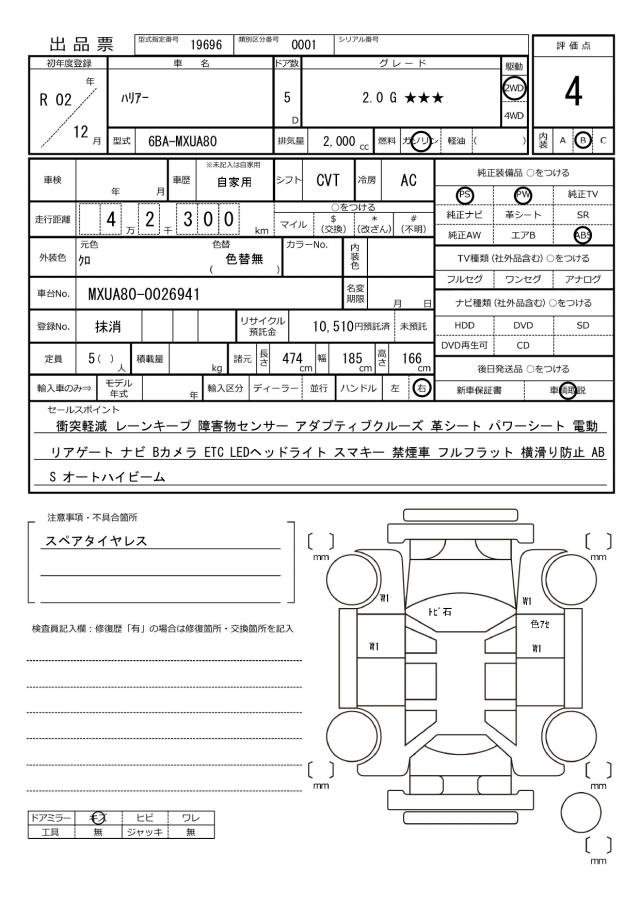 出品票 型式指定番号 19696 類別区分番号 0001 シリアル番号
評価点
初年度登録 車名 ドア数 グレード 駆動
R 02 年 ﾊﾘｱｰ 5 D 2.0 G ★★★ 2WD 4
4WD
12 月 型式 6BA-MXUA80 排気量 2,000 cc 燃料 ガソリン 軽油 ( ) 内装 A B C
車検 年 月 車歴 ※未記入は自家用 自家用 シフト CVT 冷房 AC
純正装備品 ○をつける
PS PW 純正TV
走行距離 4 2 万 千 3 0 0 km
○をつける
マイル $ (交換) * (改ざん) # (不明)
純正ナビ 革シート SR
純正AW エアB ABS
外装色 元色 ｸﾛ 色替 ( 色替無 ) カラーNo. 内装色
TV種類(社外品含む) ○をつける
フルセグ ワンセグ アナログ
車台No. MXUA80-0026941 名変期限 月 日
ナビ種類(社外品含む) ○をつける
登録No. 抹消 リサイクル預託金 10,510円預託済 未預託
HDD DVD SD
DVD再生可 CD
定員 5( ) 人 積載量 kg 諸元 長さ 474 cm 幅 185 cm 高さ 166 cm
後日発送品 ○をつける
輸入車のみ⇒ モデル年式 年 輸入区分 ディーラー 並行 ハンドル 左 右
新車保証書 車輌取説
セールスポイント
衝突軽減 レーンキープ 障害物センサー アダプティブクルーズ 革シート パワーシート 電動
リアゲート ナビ Bカメラ ETC LEDヘッドライト スマキー 禁煙車 フルフラット 横滑り防止 AB
S オートハイビーム
注意事項・不具合箇所
スペアタイヤレス
検査員記入欄：修復歴「有」の場合は修復箇所・交換箇所を記入
[ ] mm
[ ] mm
W1 W1
ﾄﾋﾞ石
色ｱｾ
W1 W1
[ ] mm
[ ] mm
[ ] mm
ドアミラー キズ ヒビ ワレ
工具 無 ジャッキ 無